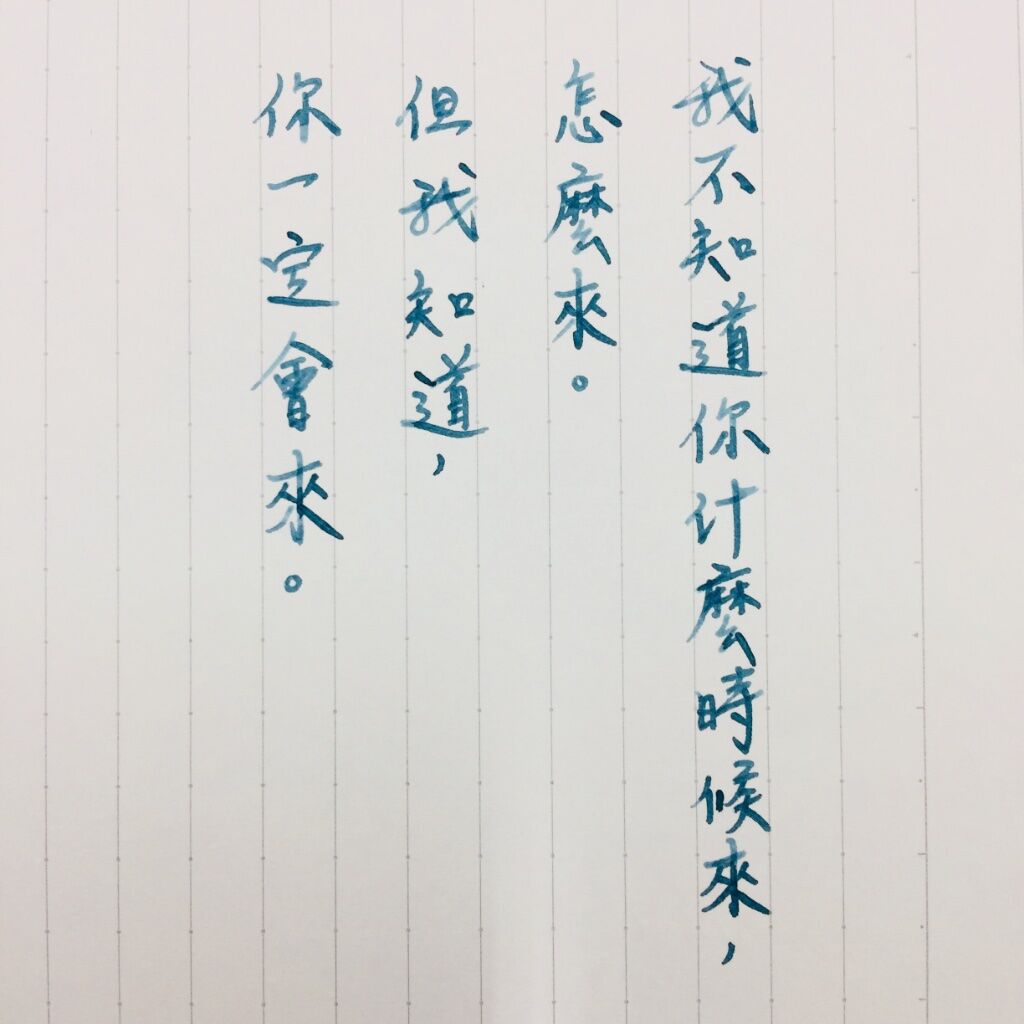 我不知道你什麼時候來，
怎麼來。
但我知道，
你一定會來。